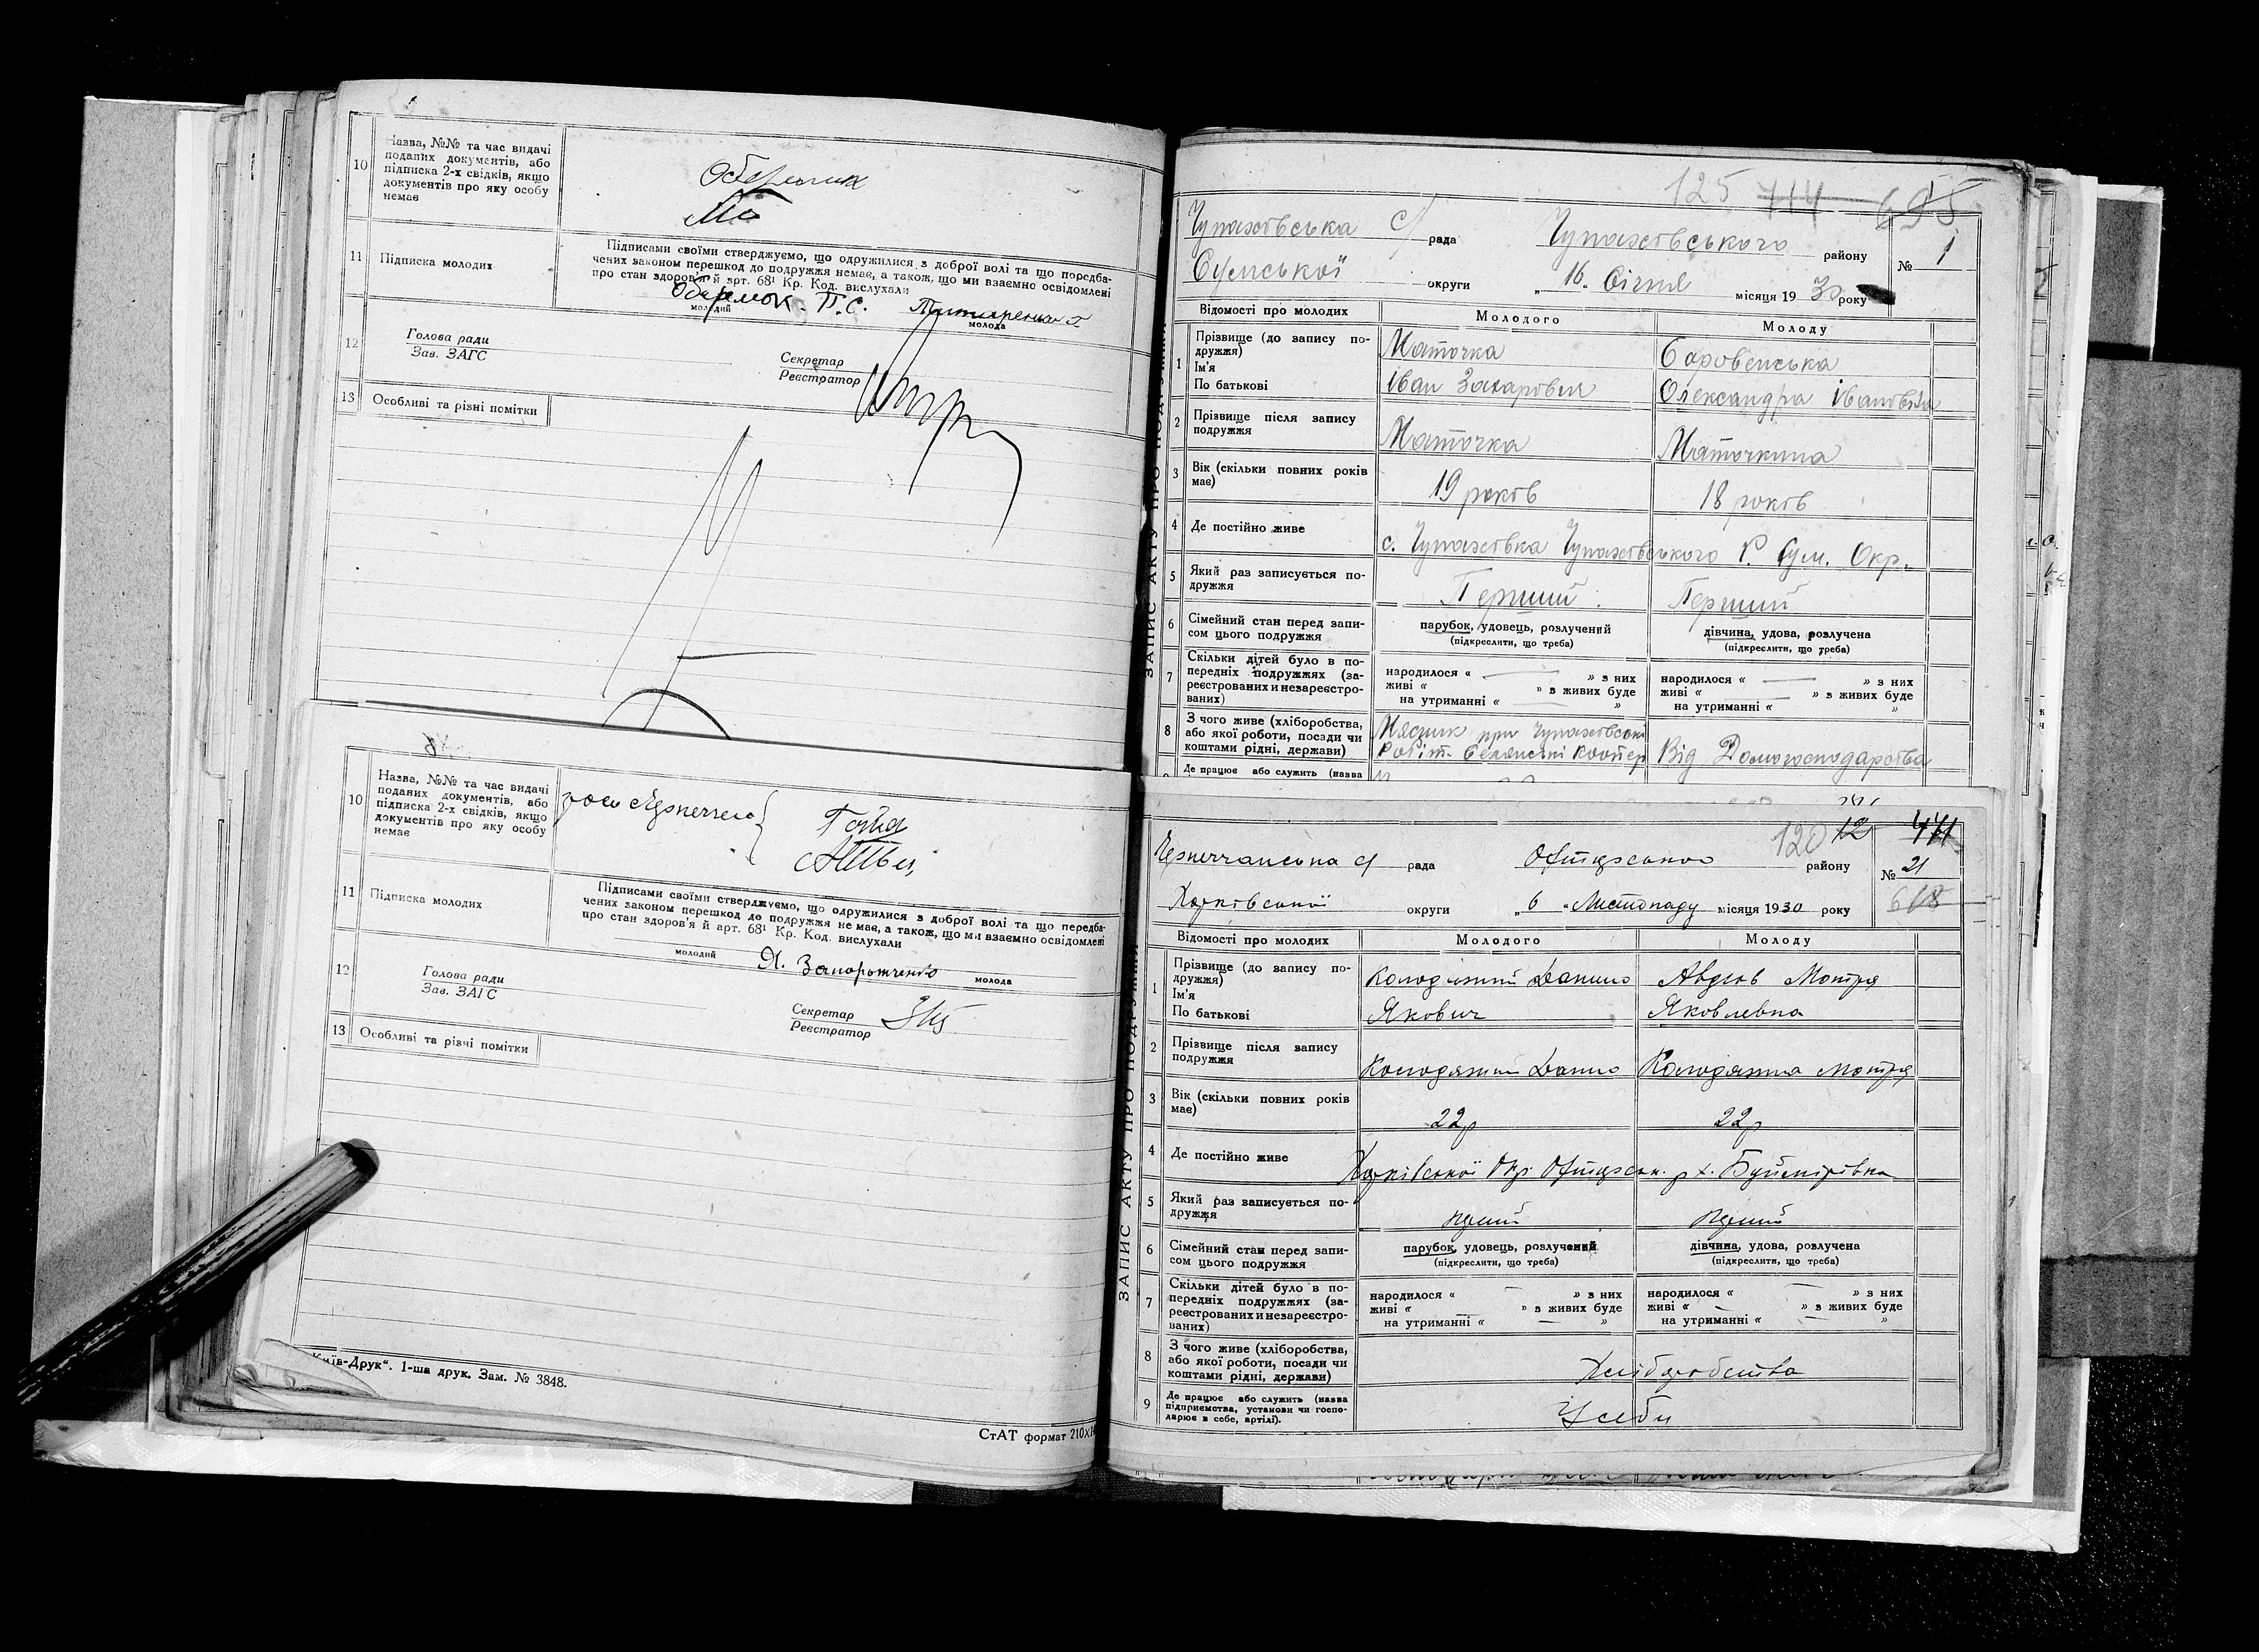 10
Назва, №№ та час видачі
поданих документів, або
підписка 2-х свідків, якщо
документів про яку особу
немає
11
Підписка молодих
Підписами своїми стверджуємо, що одружилися з доброї волі та що передба-
чених законом перешкод до подружжя немає, а також, що ми взаємно освідомлені
про стан здоров'я й арт. 68¹ Кр. Код. вислухали
П.С.
молодий
молода
12
Голова ради
Зав. ЗАГС
Секретар
Реєстратор
13
Особливі та різні помітки
10
Назва, №№ та час видачі
поданих документів, або
підписка 2-х свідків, якщо
документів про яку особу
немає
11
Підписка молодих
Підписами своїми стверджуємо, що одружилися з доброї волі та що передба-
чених законом перешкод до подружжя не має, а також, що ми взаємно освідомлені
про стан здоров'я й арт. 68¹ Кр. Код. вислухали
молодий
молода
12
Голова ради
Зав. ЗАГС
Секретар
Реєстратор
13
Особливі та різні помітки
Київ-Друк“. 1-ша друк. Зам. № 3848.
СтАТ формат 210×1
ЗАПИС АКТУ ПРО ПОДРУЖЖЯ
125 714 695
Чупахівська с/ рада Чупахівського району № 1
Сумської округи „ 16. Січня місяця 19 30 року
Відомості про молодих Молодого Молоду
1
Прізвище (до запису по-
дружжя)
Ім'я
По батькові
Маточка
Іван Захарович
Боровенська
Олександра Івановна
2
Прізвище після запису
подружжя
Маточка
Маточкина
3
Вік (скільки повних років
має)
19 років
18 років
4
Де постійно живе
с. Чупахівка Чупахівського Р. Сум. Окр.
5
Який раз записується по-
дружжя
Перший
Перший
6
Сімейний стан перед запи-
сом цього подружжя
парубок, удовець, розлучений
(підкреслити, що треба)
дівчина, удова, розлучена
(підкреслити, що треба)
7
Скільки дітей було в по-
передніх подружжях (за-
реєстрованих и незареєстро-
ваних)
народилося « » з них
живі « » з живих буде
на утриманні « »
народилося « » з них
живі « » з живих буде
на утриманні « »
8
З чого живе (хліборобства,
або якої роботи, посади чи
коштами рідні, держави)
Мясник при Чупахівські
Робіт. Селянські Коопер
Від Домогосподарства
Де працює або служить (назва
ЗАПИС АКТУ ПРО ПОДРУЖЖЯ
120 12
рада Охтирського району № 21
Харківської округи „ 6 „ Листопаду місяця 1930 року
Відомості про молодих Молодого Молоду
1
Прізвище (до запису по-
дружжя)
Ім'я
По батькові
Колодяжний Данило
Якович
Авдієв Мотря
Яковлевна
2
Прізвище після запису
подружжя
Колодяжний Данило
Колодяжна Мотря
3
Вік (скільки повних років
має)
22р
22р
4
Де постійно живе
Харківської Окр. Охтирськ. р х. Буймерівка
5
Який раз записується по-
дружжя
6
Сімейний стан перед запи-
сом цього подружжя
парубок, удовець, розлучений
(підкреслити, що треба)
дівчина, удова, розлучена
(підкреслити, що треба)
7
Скільки дітей було в по-
передніх подружжях (за-
реєстрованих и незареєстро-
ваних)
народилося « » з них
живі « » з живих буде
на утриманні « »
народилося « » з них
живі « » з живих буде
на утриманні « »
8
З чого живе (хліборобства,
або якої роботи, посади чи
коштами рідні, держави)
Хліборобства
9
Де працює або служить (назва
підприємства, установи чи госпо-
дарює в себе, артілі).
У себи